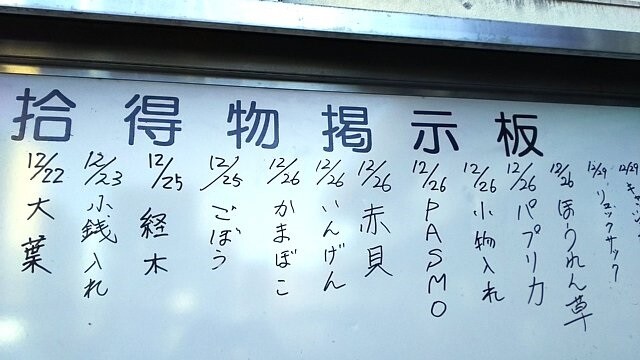 拾得物掲示板
12/22 大葉
12/23 小銭入れ
12/25 経木
12/25 ごぼう
12/26 かまぼこ
12/26 いんげん
12/26 赤貝
12/26 PASMO
12/26 小物入れ
12/26 パプリカ
12/26 ほうれん草
12/29 リュックサック
12/29